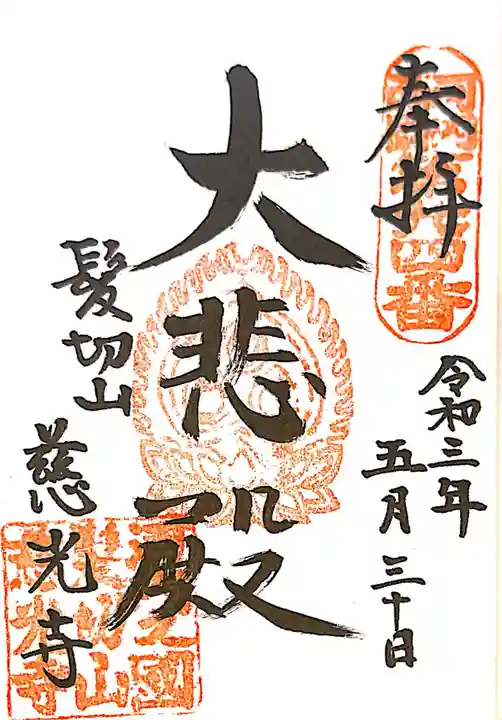 奉拝
令和三年
五月三十日
大悲殿
髪切山
慈光寺